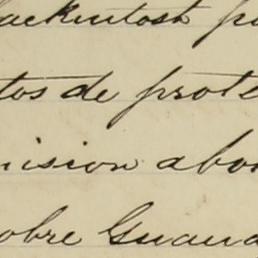 ackintosh p
tos de prote
nision abo
obre Guana